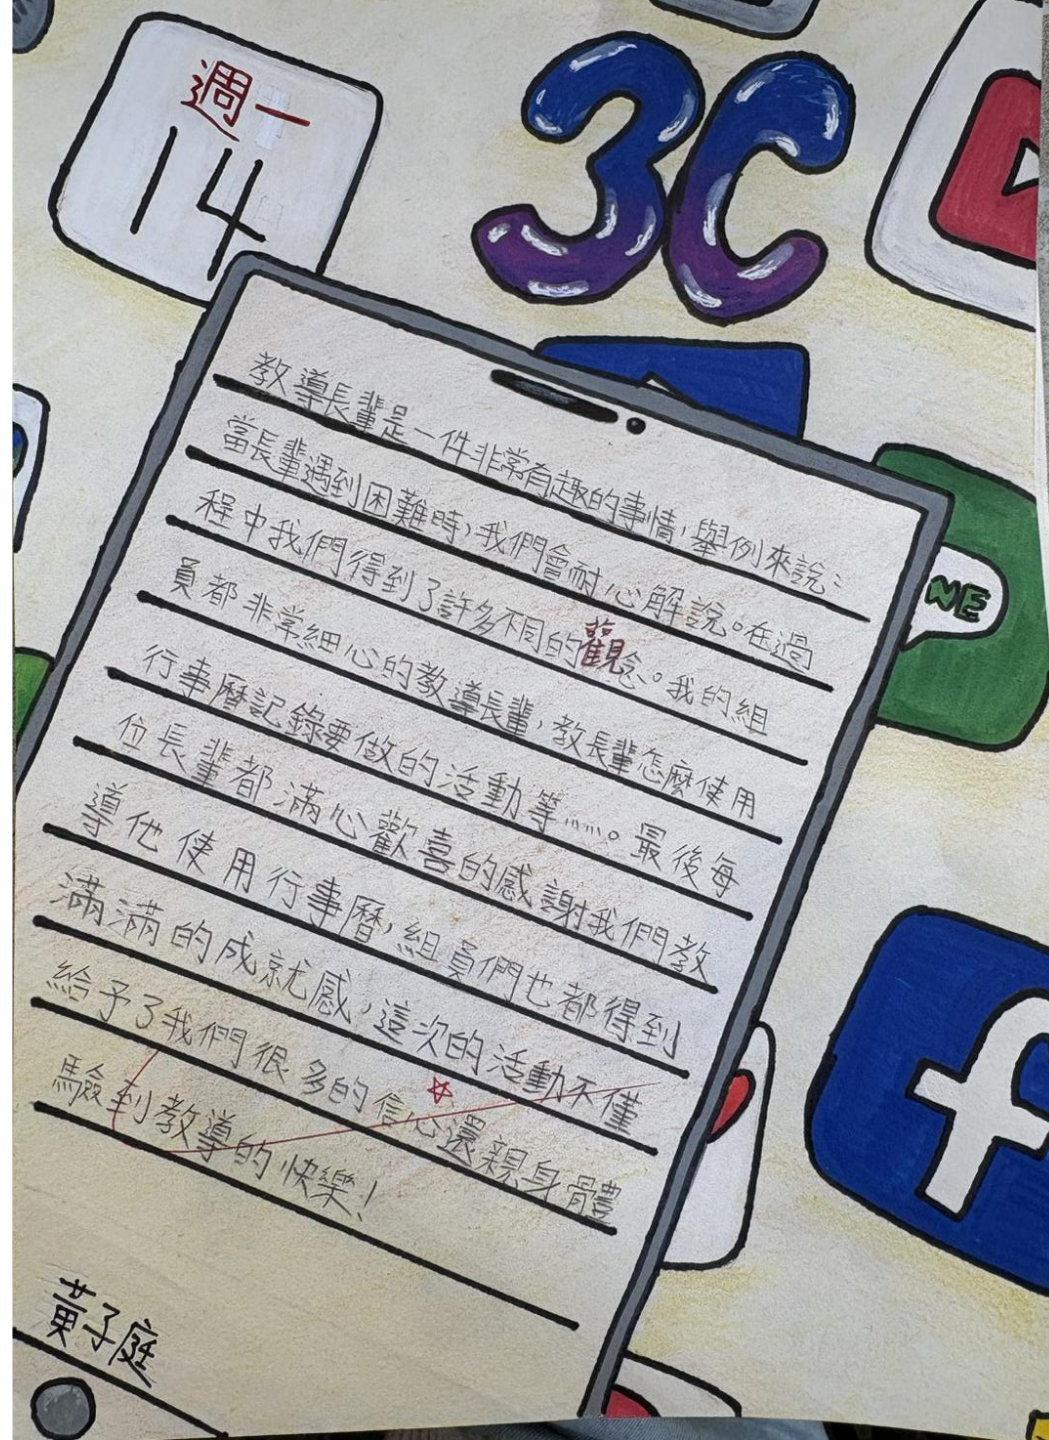 週一
14
3C
教導長輩是一件非常有趣的事情，舉例來說：
當長輩遇到困難時，我們會耐心解說。在過
程中我們得到了許多不同的觀念。我的組
員都非常細心的教導長輩，教長輩怎麼使用
行事曆記錄要做的活動等......。最後每
位長輩都滿心歡喜的感謝我們教
導他使用行事曆，組員們也都得到
滿滿的成就感，這次的活動不僅
給予了我們很多的信心還親身體
驗到教導的快樂！
黃子庭
NE
f